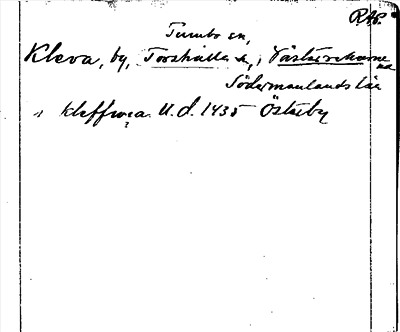 RAP.
Tumbo sn,
Kleva, by, Torshälla s, i Västerrekarne
hd
Södermanlands län
i kleffwa U. d. 1435 Österby